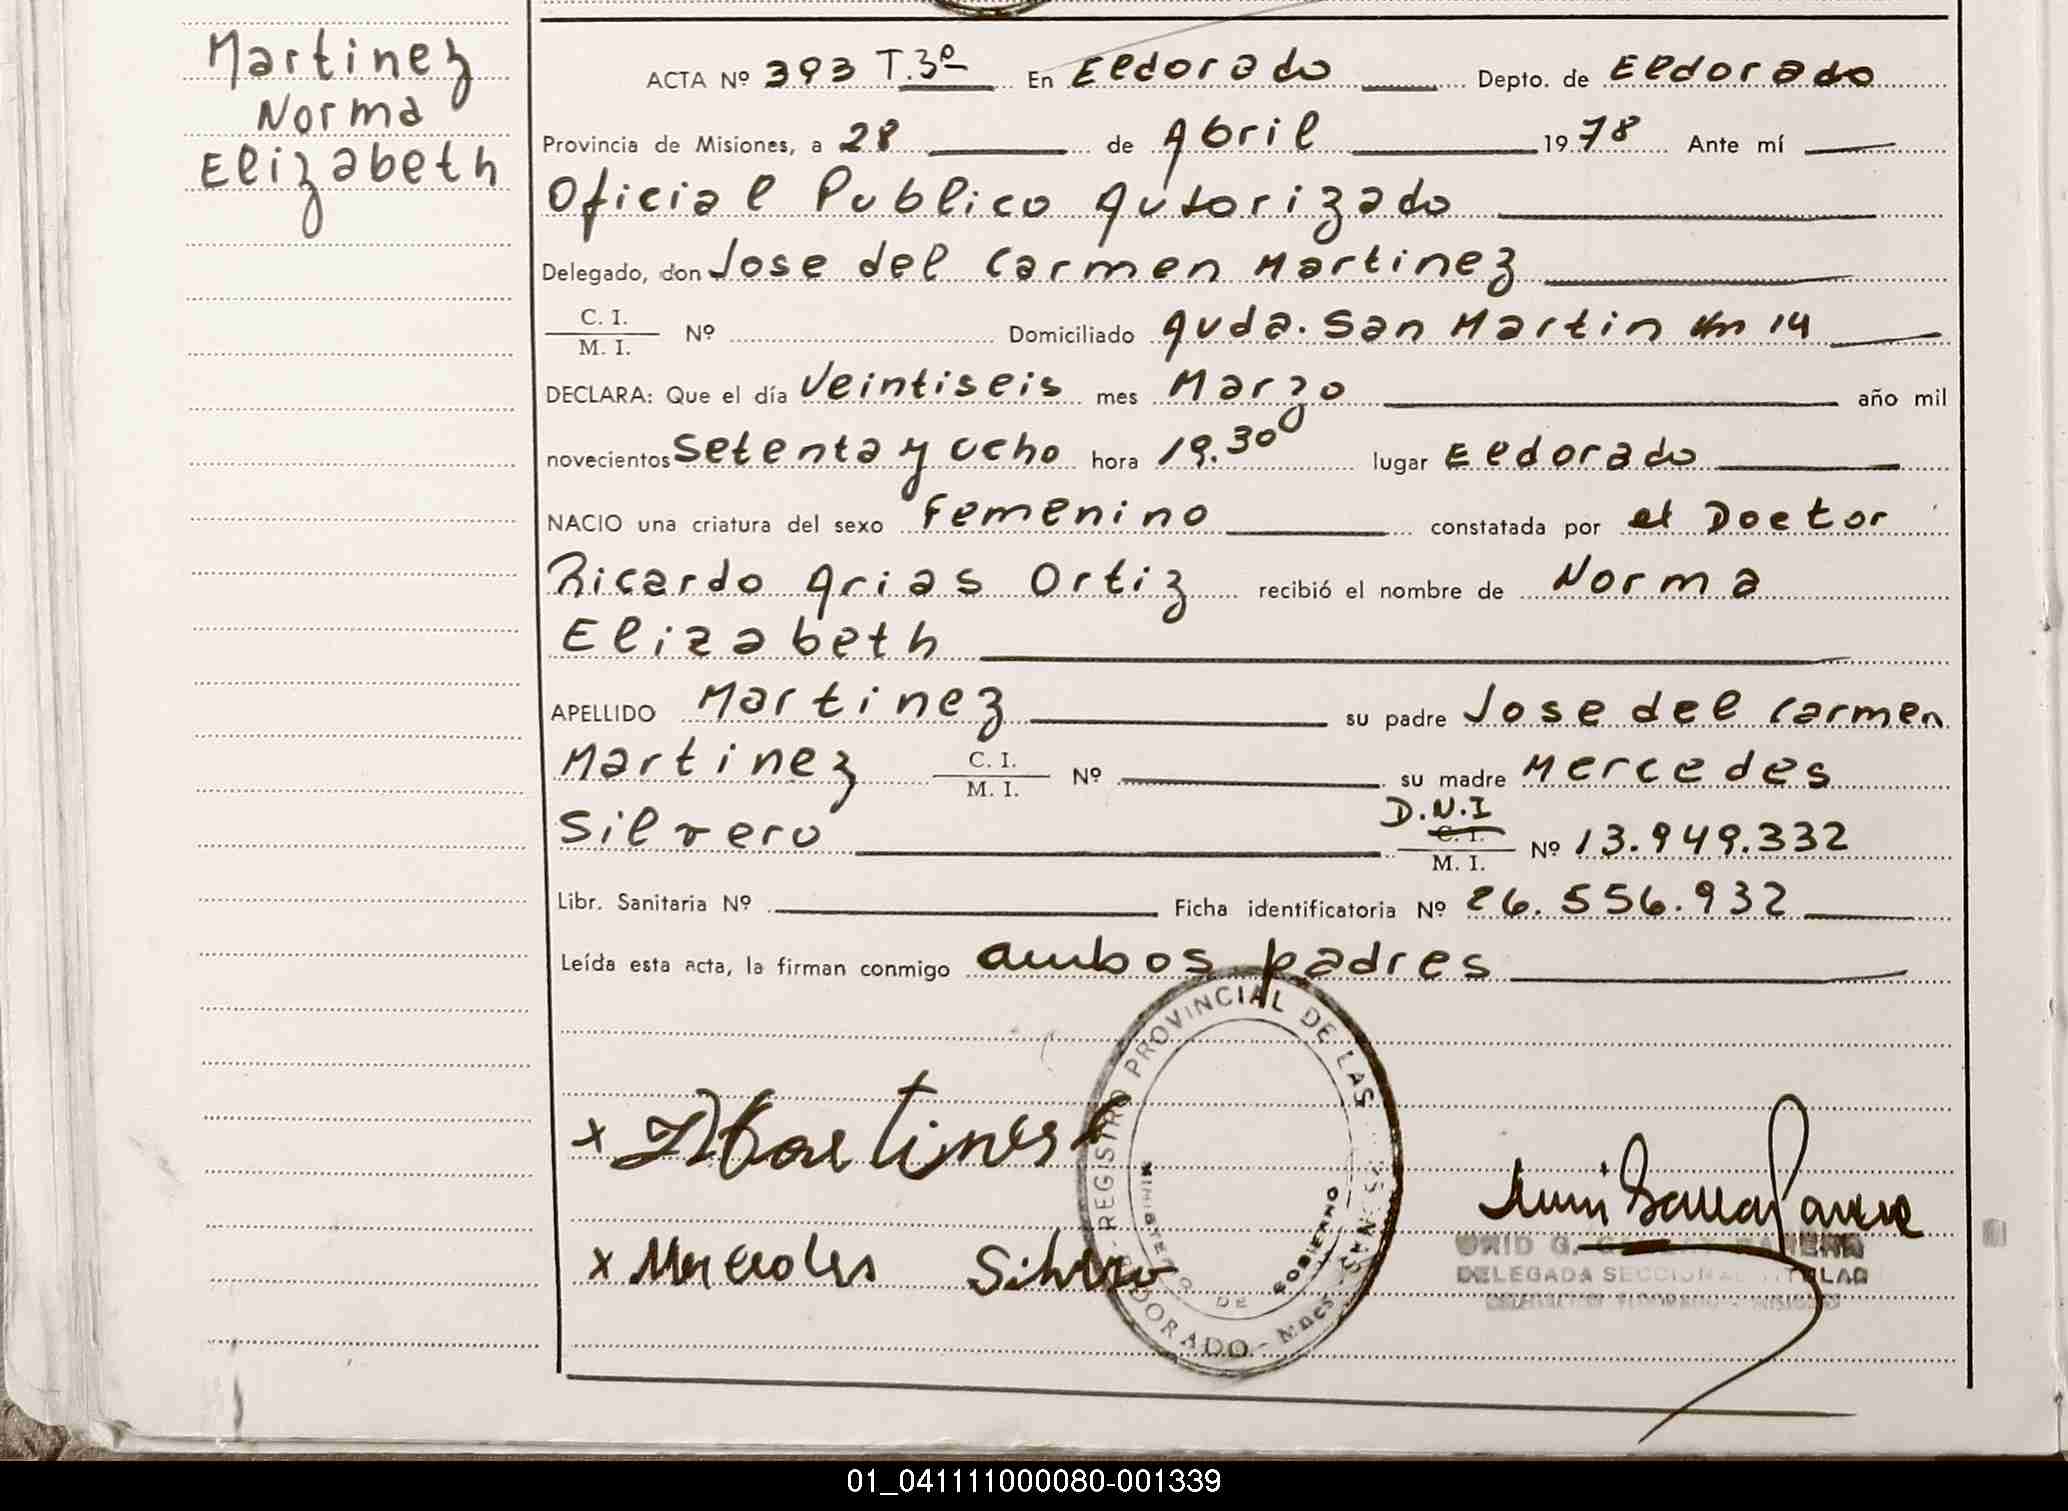 Martinez
Norma
Elizabeth
ACTA Nº 393 T.3º En Eldorado Depto. de Eldorado
Provincia de Misiones, a 28 de Abril 1978 Ante mí
Oficial Publico Autorizado
Delegado, don Jose del Carmen Martinez
C. I.
M. I. Nº Domiciliado Avda. San Martin Km 14
DECLARA: Que el día Veintiseis mes Marzo año mil
novecientos Setenta y ocho hora 19.30 lugar Eldorado
NACIO una criatura del sexo Femenino constatada por el Doctor
Ricardo Arias Ortiz recibió el nombre de Norma
Elizabeth
APELLIDO Martinez su padre Jose del Carmen
Martinez C. I. M. I. Nº su madre Mercedes
Silvero D.N.I C. I. M. I. Nº 13.949.332
Libr. Sanitaria Nº Ficha identificatoria Nº 26.556.932
Leída esta acta, la firman conmigo ambos padres
REGISTRO PROVINCIAL DE LAS
MINISTERIO DE GOBIERNO
ELDORADO - Mnes
x Martines
x Mercedes Silvero
DELEGADA SECCIONAL TITULAR
DELEGACION ELDORADO - MISIONES
01_041111000080-001339